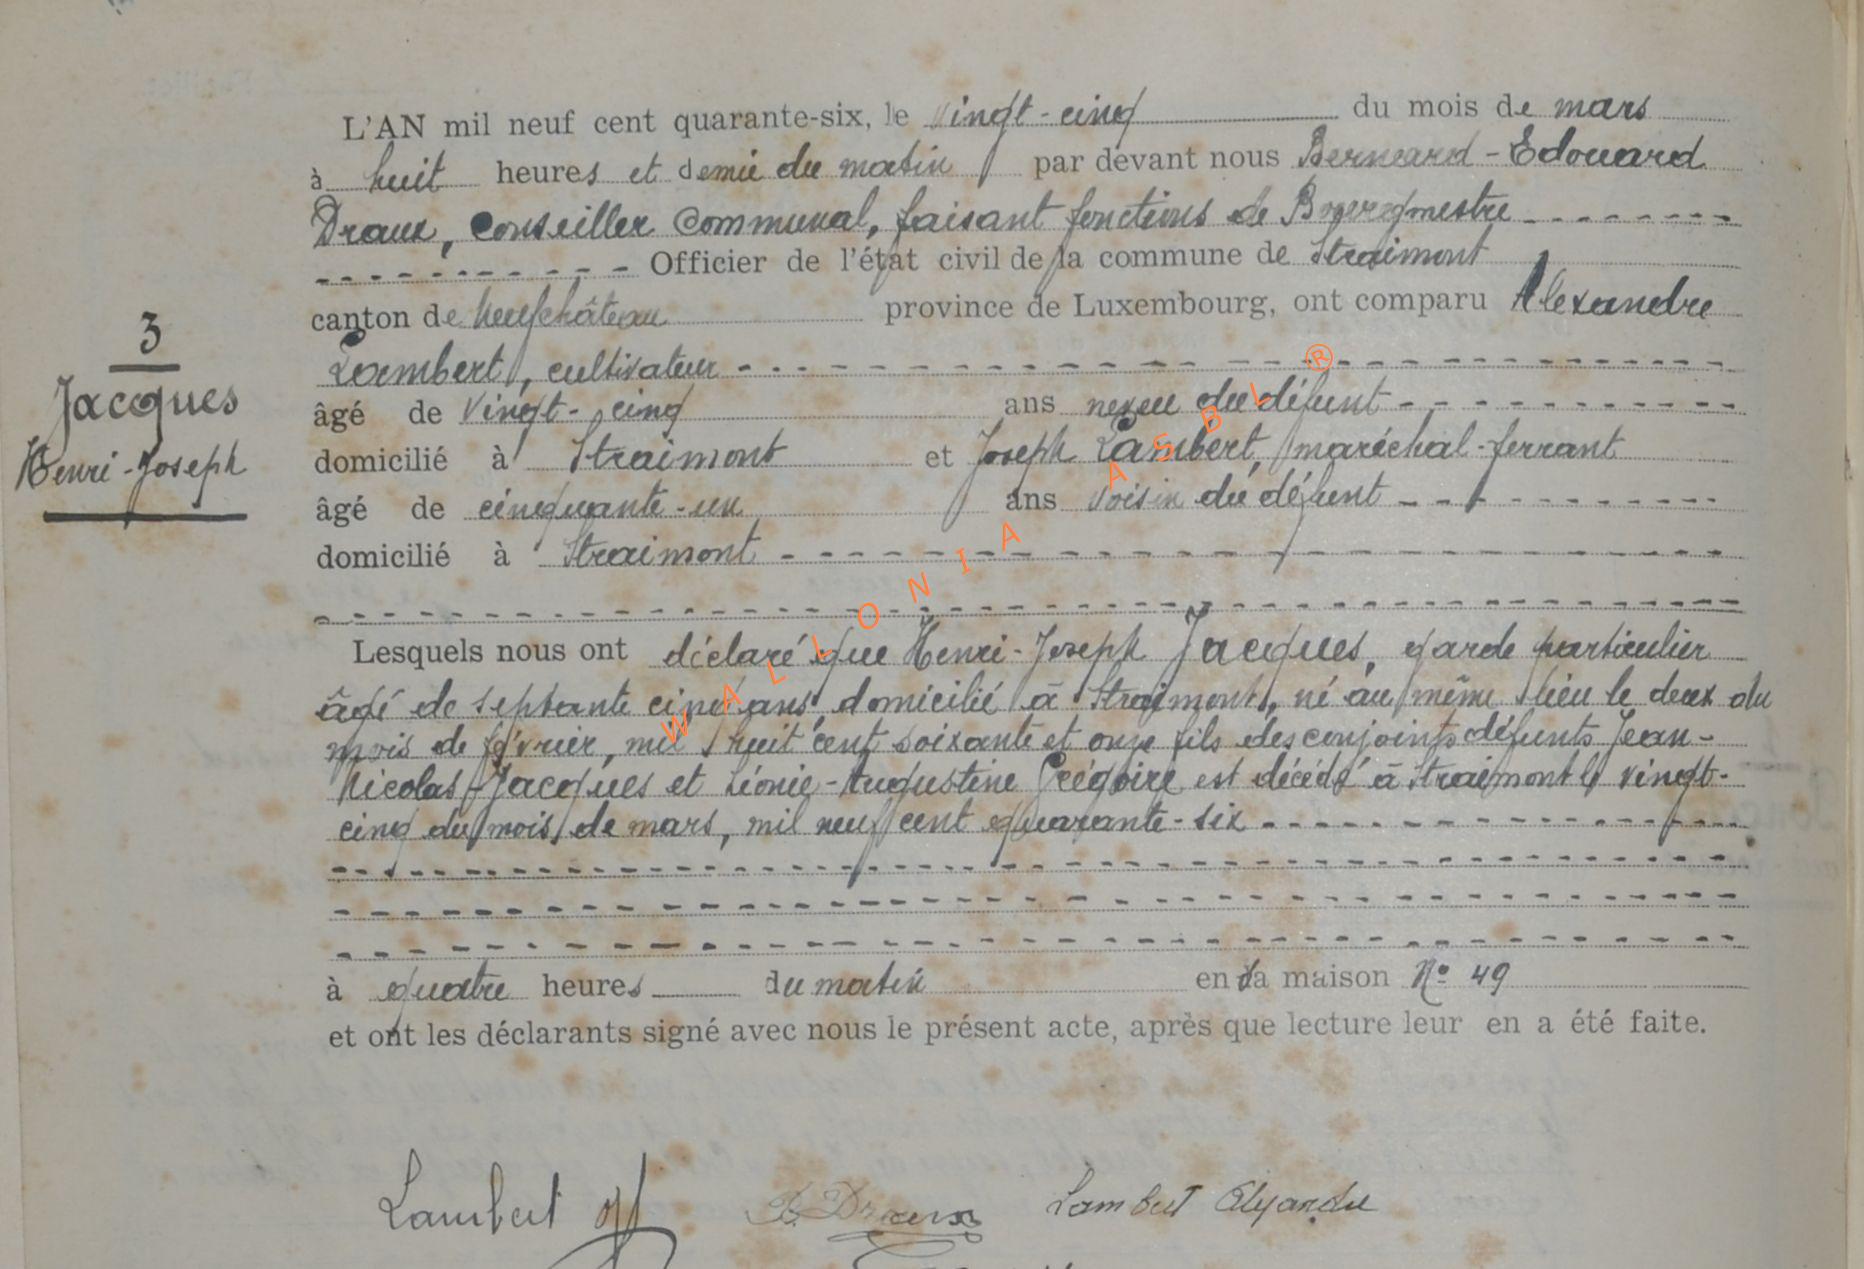 L'AN mil neuf cent quarante-six, le vingt-cinq du mois de mars
à huit heures et demie du matin par devant nous Bernard-Edouard
Draux, Conseiller Communal, faisant fonctions de Bourgmestre
Officier de l'état civil de la commune de Straimont
canton de Neufchâteau province de Luxembourg, ont comparu Alexandre
Lambert, cultivateur
âgé de vingt-cinq ans neveu du défunt
domicilié à Straimont et Joseph Lambert, maréchal-ferrant
âgé de cinquante-un ans voisin du défunt
domicilié à Straimont
3
Jacques
Henri-Joseph
Lesquels nous ont déclaré que Henri-Joseph Jacques, garde particulier
âgé de septante cinq ans, domicilié à Straimont, né au même lieu le deux du
mois de février, mil huit cent soixante et onze fils des conjoints défunts Jean-
Nicolas Jacques et Léonie-Augustine Grégoire est décédé à Straimont le vingt-
cinq du mois de mars, mil neuf cent quarante-six
à quatre heures du matin en sa maison N° 49
et ont les déclarants signé avec nous le présent acte, après que lecture leur en a été faite.
Lambert B. Draux Lambert Alexandre
WALLONIA ASBL ®